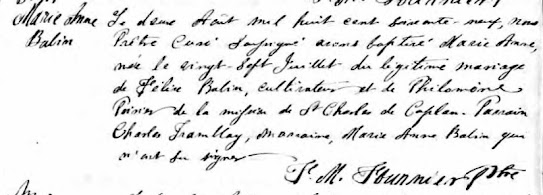 Marie Anne
Balin
Le deux Août mil huit cent soixante-neuf, nous
Prêtre Curé soussigné avons baptisé Marie Anne,
née le vingt-sept Juillet du légitime mariage
de Félix Balin, cultivateur et de Philomène
Poirier de la mission de St Charles de Caplan. Parrain
Charles Tramblay, marraine, Marie Anne Balin qui
n'ont su signer
F. M. Fournier Ptre